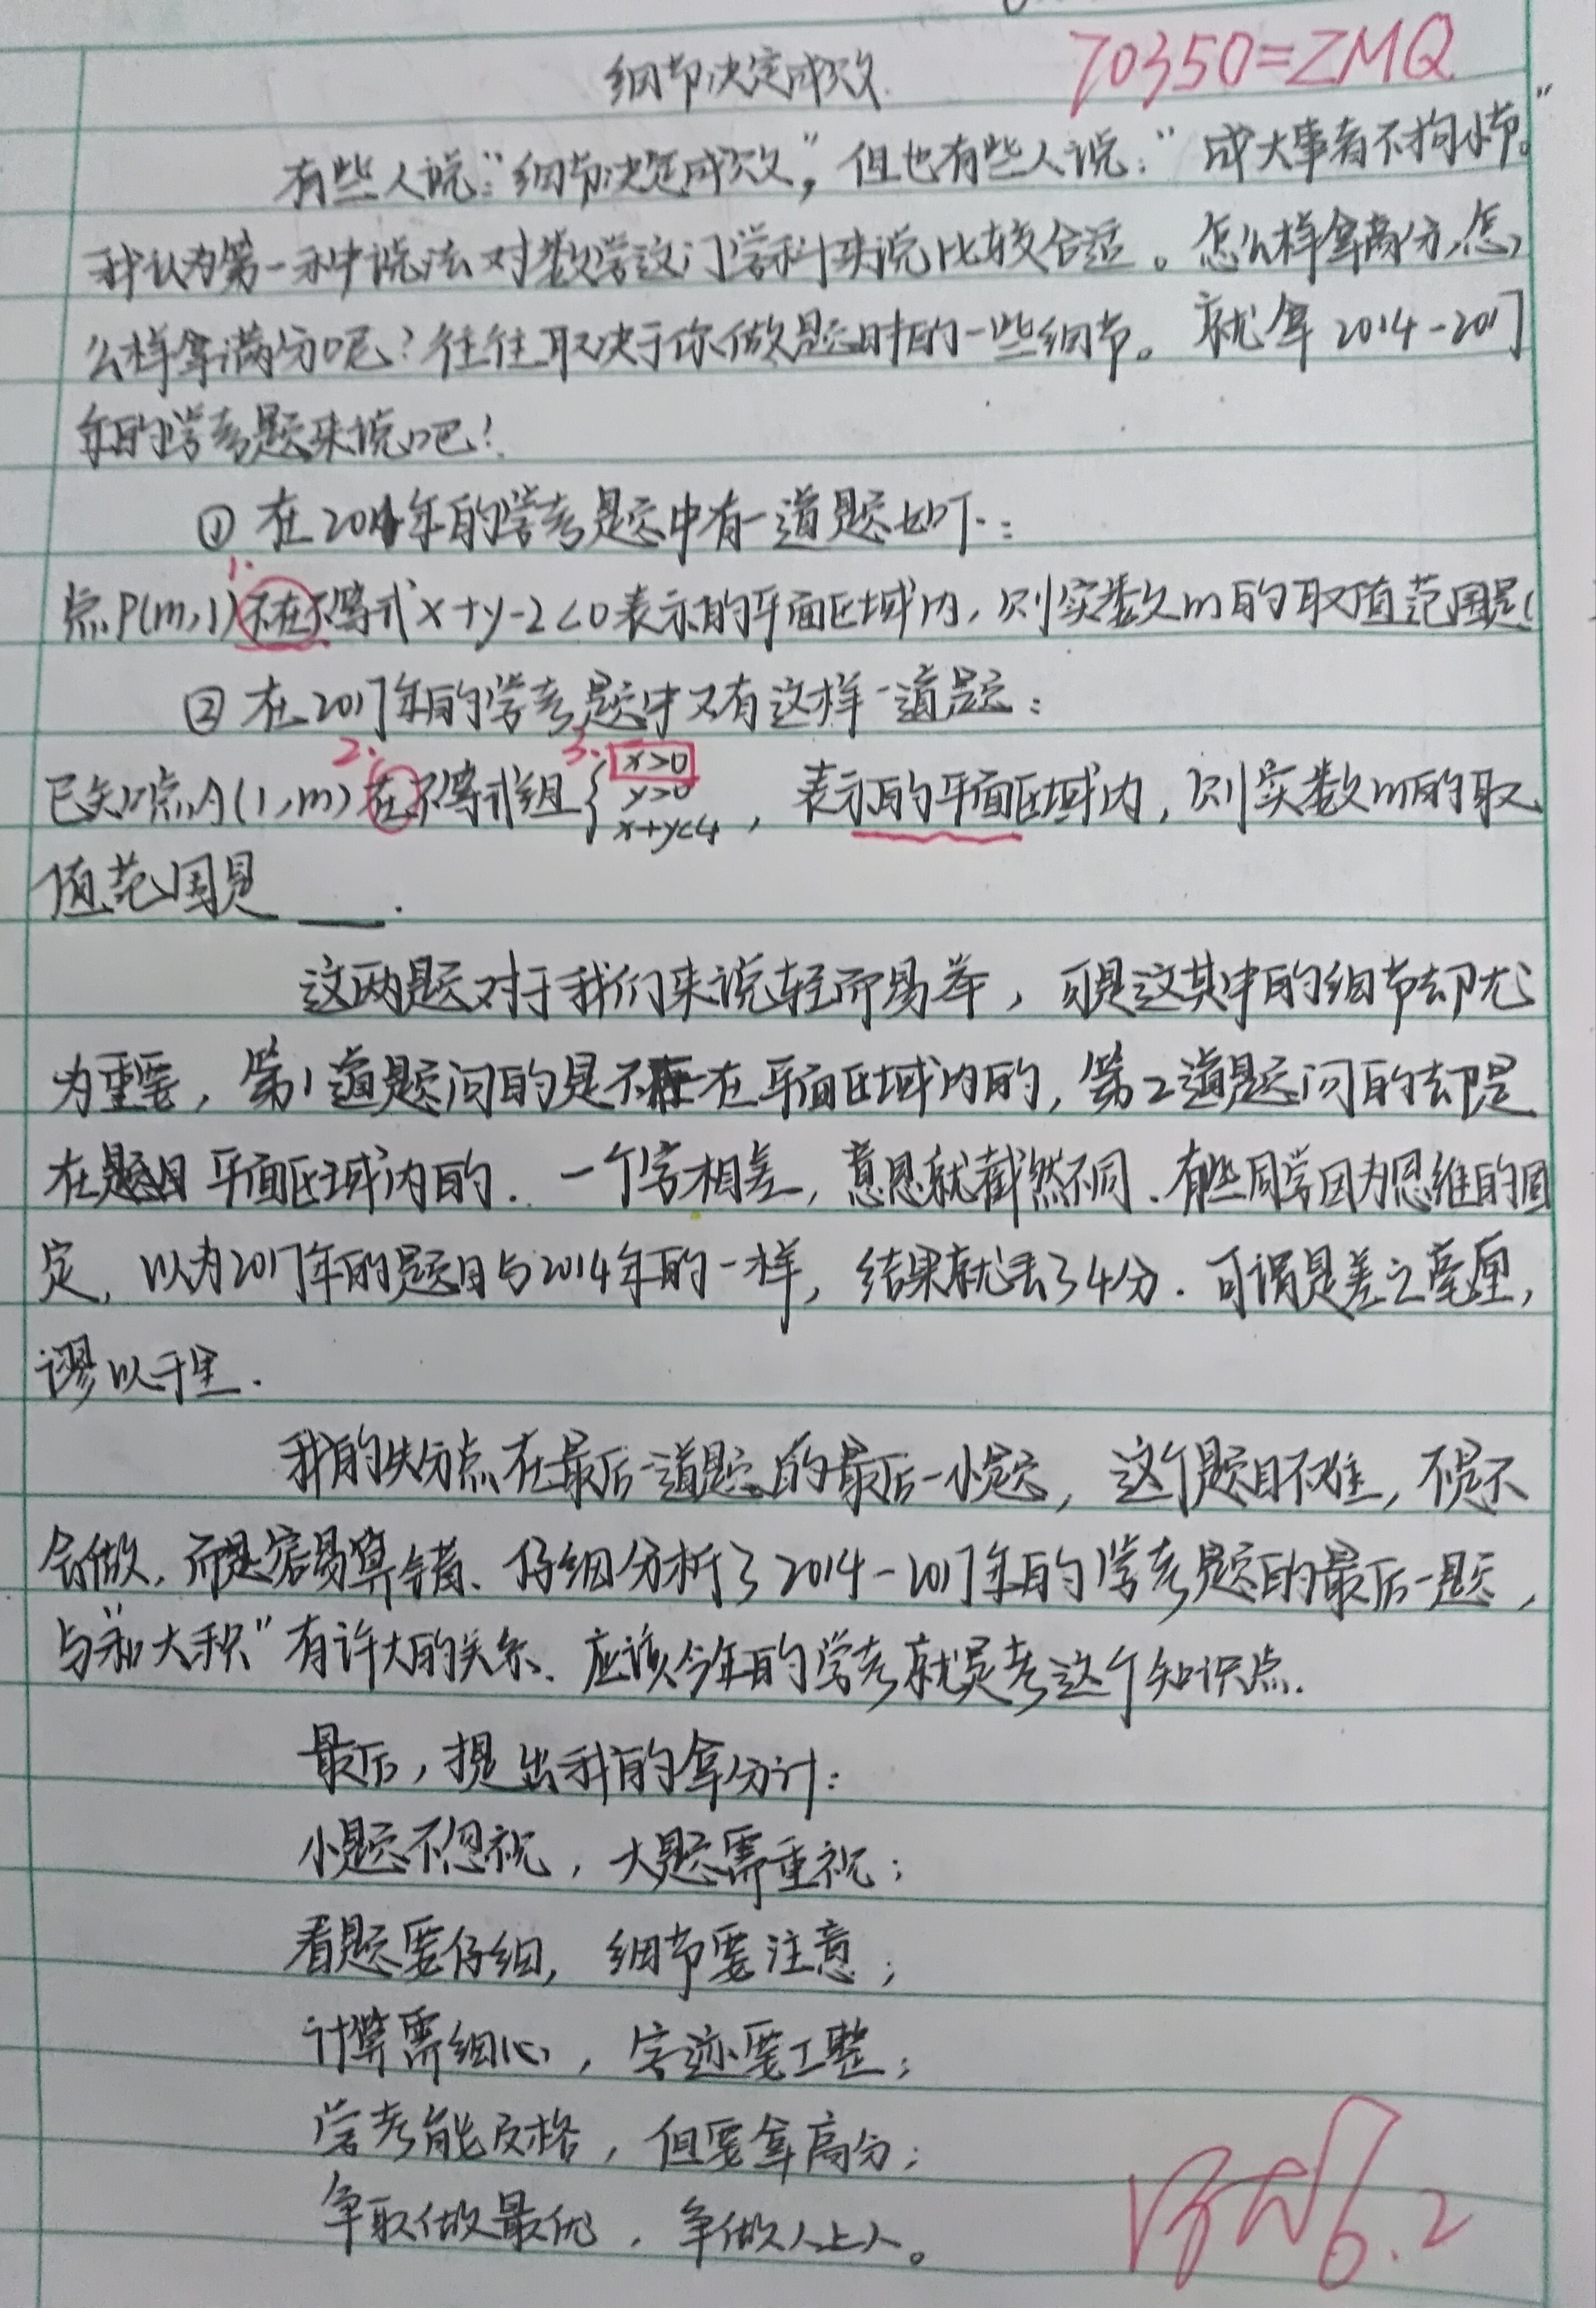 细节决定成败
70350=ZMQ
有些人说:"细节决定成败",但也有些人说:"成大事者不拘小节。"
我认为第一种说法对数学这门学科来说比较合适。怎么样拿高分,怎
么样拿满分呢?往往取决于你做题时的一些细节。就拿2014-2017
年的学考题来说吧!
① 在2014年的学考题中有一道题如下:
1.
点P(m,1)不在不等式x+y-2<0表示的平面区域内,则实数m的取值范围是(
② 在2017年的学考题中又有这样一道题:
2. 3.
已知点A(1,m)在不等式组{x>0 y>0 x+y<4,表示的平面区域内,则实数m的取
值范围是___.
这两题对于我们来说轻而易举,可是这其中的细节却尤
为重要,第1道题问的是不在平面区域内的,第2道题问的却是
在题目平面区域内的.一个字相差,意思就截然不同.有些同学因为思维的固
定,以为2017年的题目与2014年的一样,结果就丢了4分.可谓是差之毫厘,
谬以千里.
我的失分点在最后一道题的最后一小题,这个题目不难,不是不
会做,而是容易算错.仔细分析了2014-2017年的学考题的最后一题,
与"和大积"有许大的关系.应该今年的学考就是考这个知识点.
最后,提出我的拿分计:
小题不忽视,大题需重视;
看题要仔细,细节要注意;
计算需细心,字迹要工整;
学考能及格,但要拿高分;
争取做最优,争做人上人。
6.2